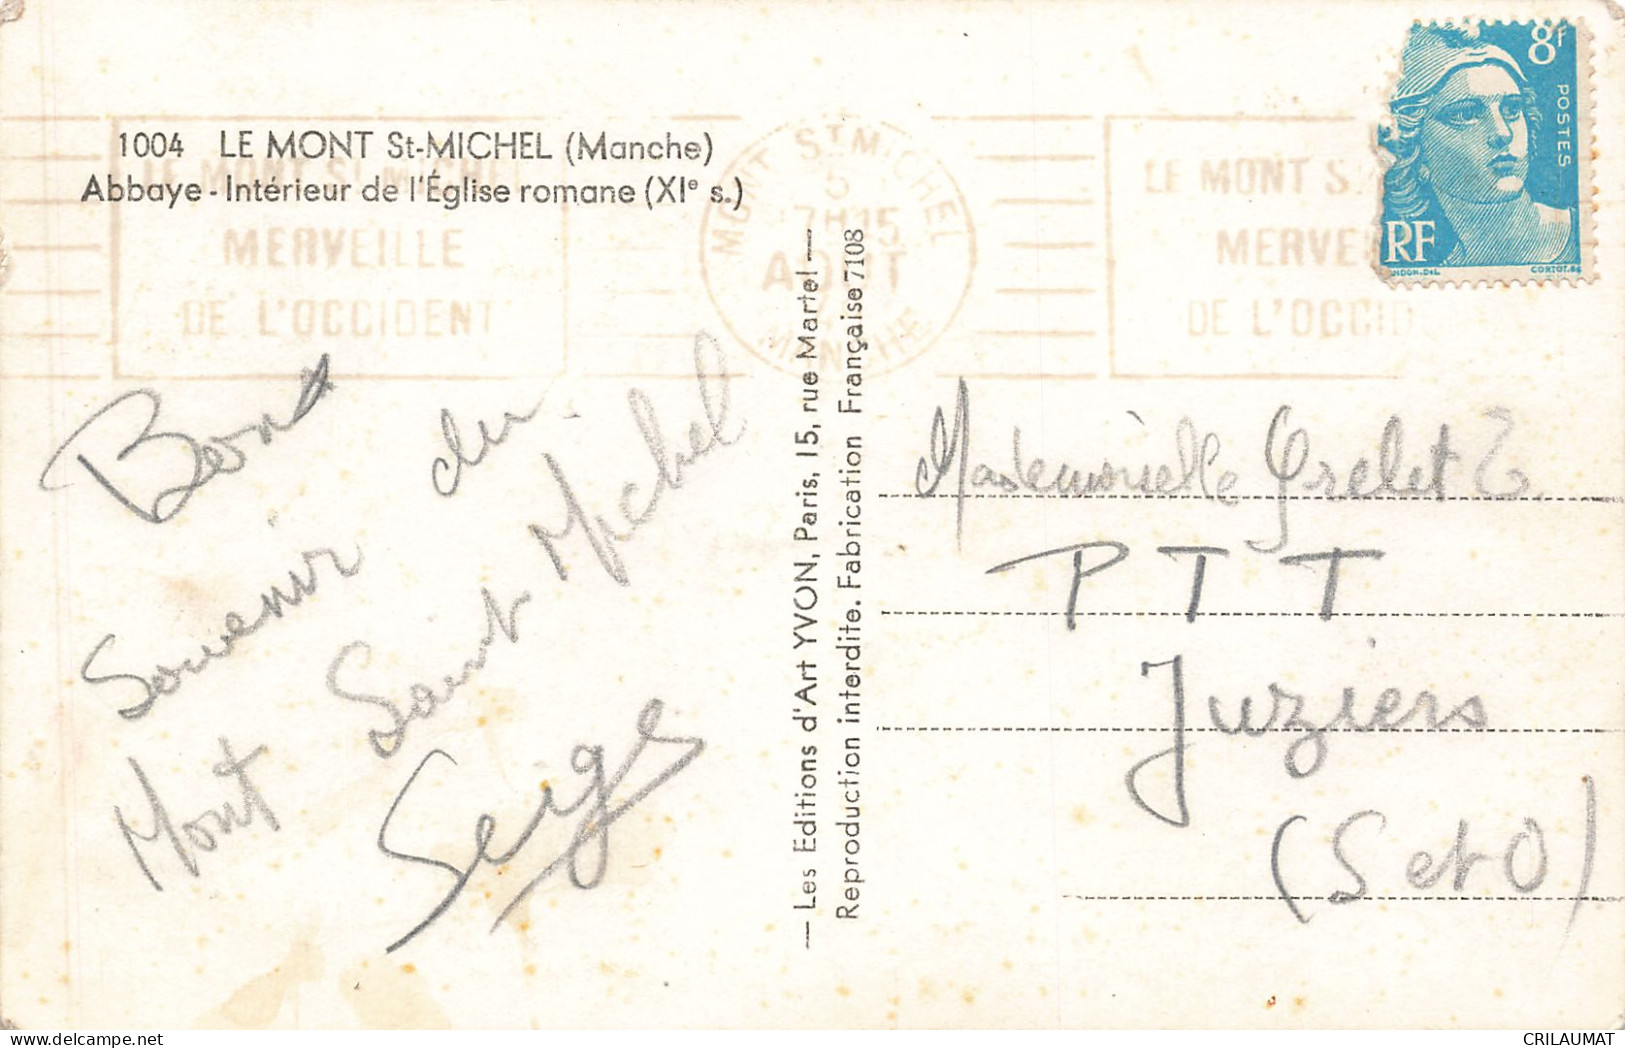 1004 LE MONT St-MICHEL (Manche)
Abbaye - Intérieur de l'Église romane (XIe s.)
LE MONT ST MICHEL
MERVEILLE
DE L'OCCIDENT
MONT ST MICHEL
5
7H15
AOUT
MANCHE
LE MONT S
MERVE
DE L'OCCID
8f
POSTES
RF
CORTOT.
Bons
Souvenir du
Mont Saint Michel
Serge
— Les Editions d'Art YVON, Paris, 15, rue Martel —
Reproduction interdite. Fabrication Française 7108
Mademoiselle Grelet
PTT
Juziers
(S et O)
CRILAUMAT